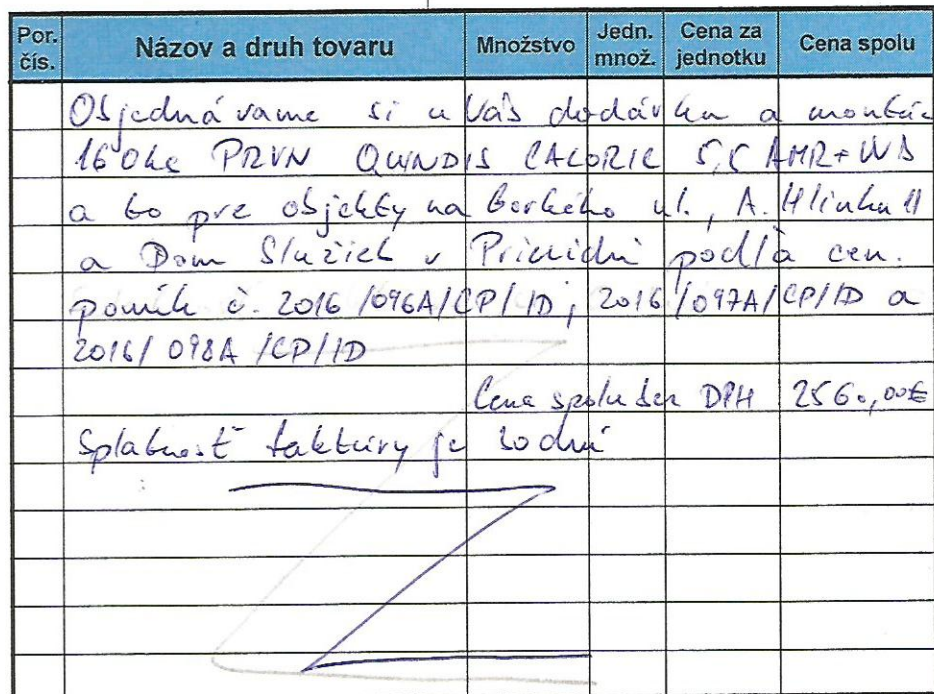 Por. čís. Názov a druh tovaru Množstvo Jedn. množ. Cena za jednotku Cena spolu
Objednávame si u Vás dodávku a montáž
160ks PRVN QUNDIS CALORIC 5,5 AMR+WB
a to pre objekty na Gorkého ul., A. Hlinku 11
a Dom Služieb v Prievidzi podľa cen.
ponúk č. 2016/096A/CP/ID, 2016/097A/CP/ID a
2016/098A/CP/ID
Cena spolu bez DPH 2560,00€
Splatnosť faktúry je dní